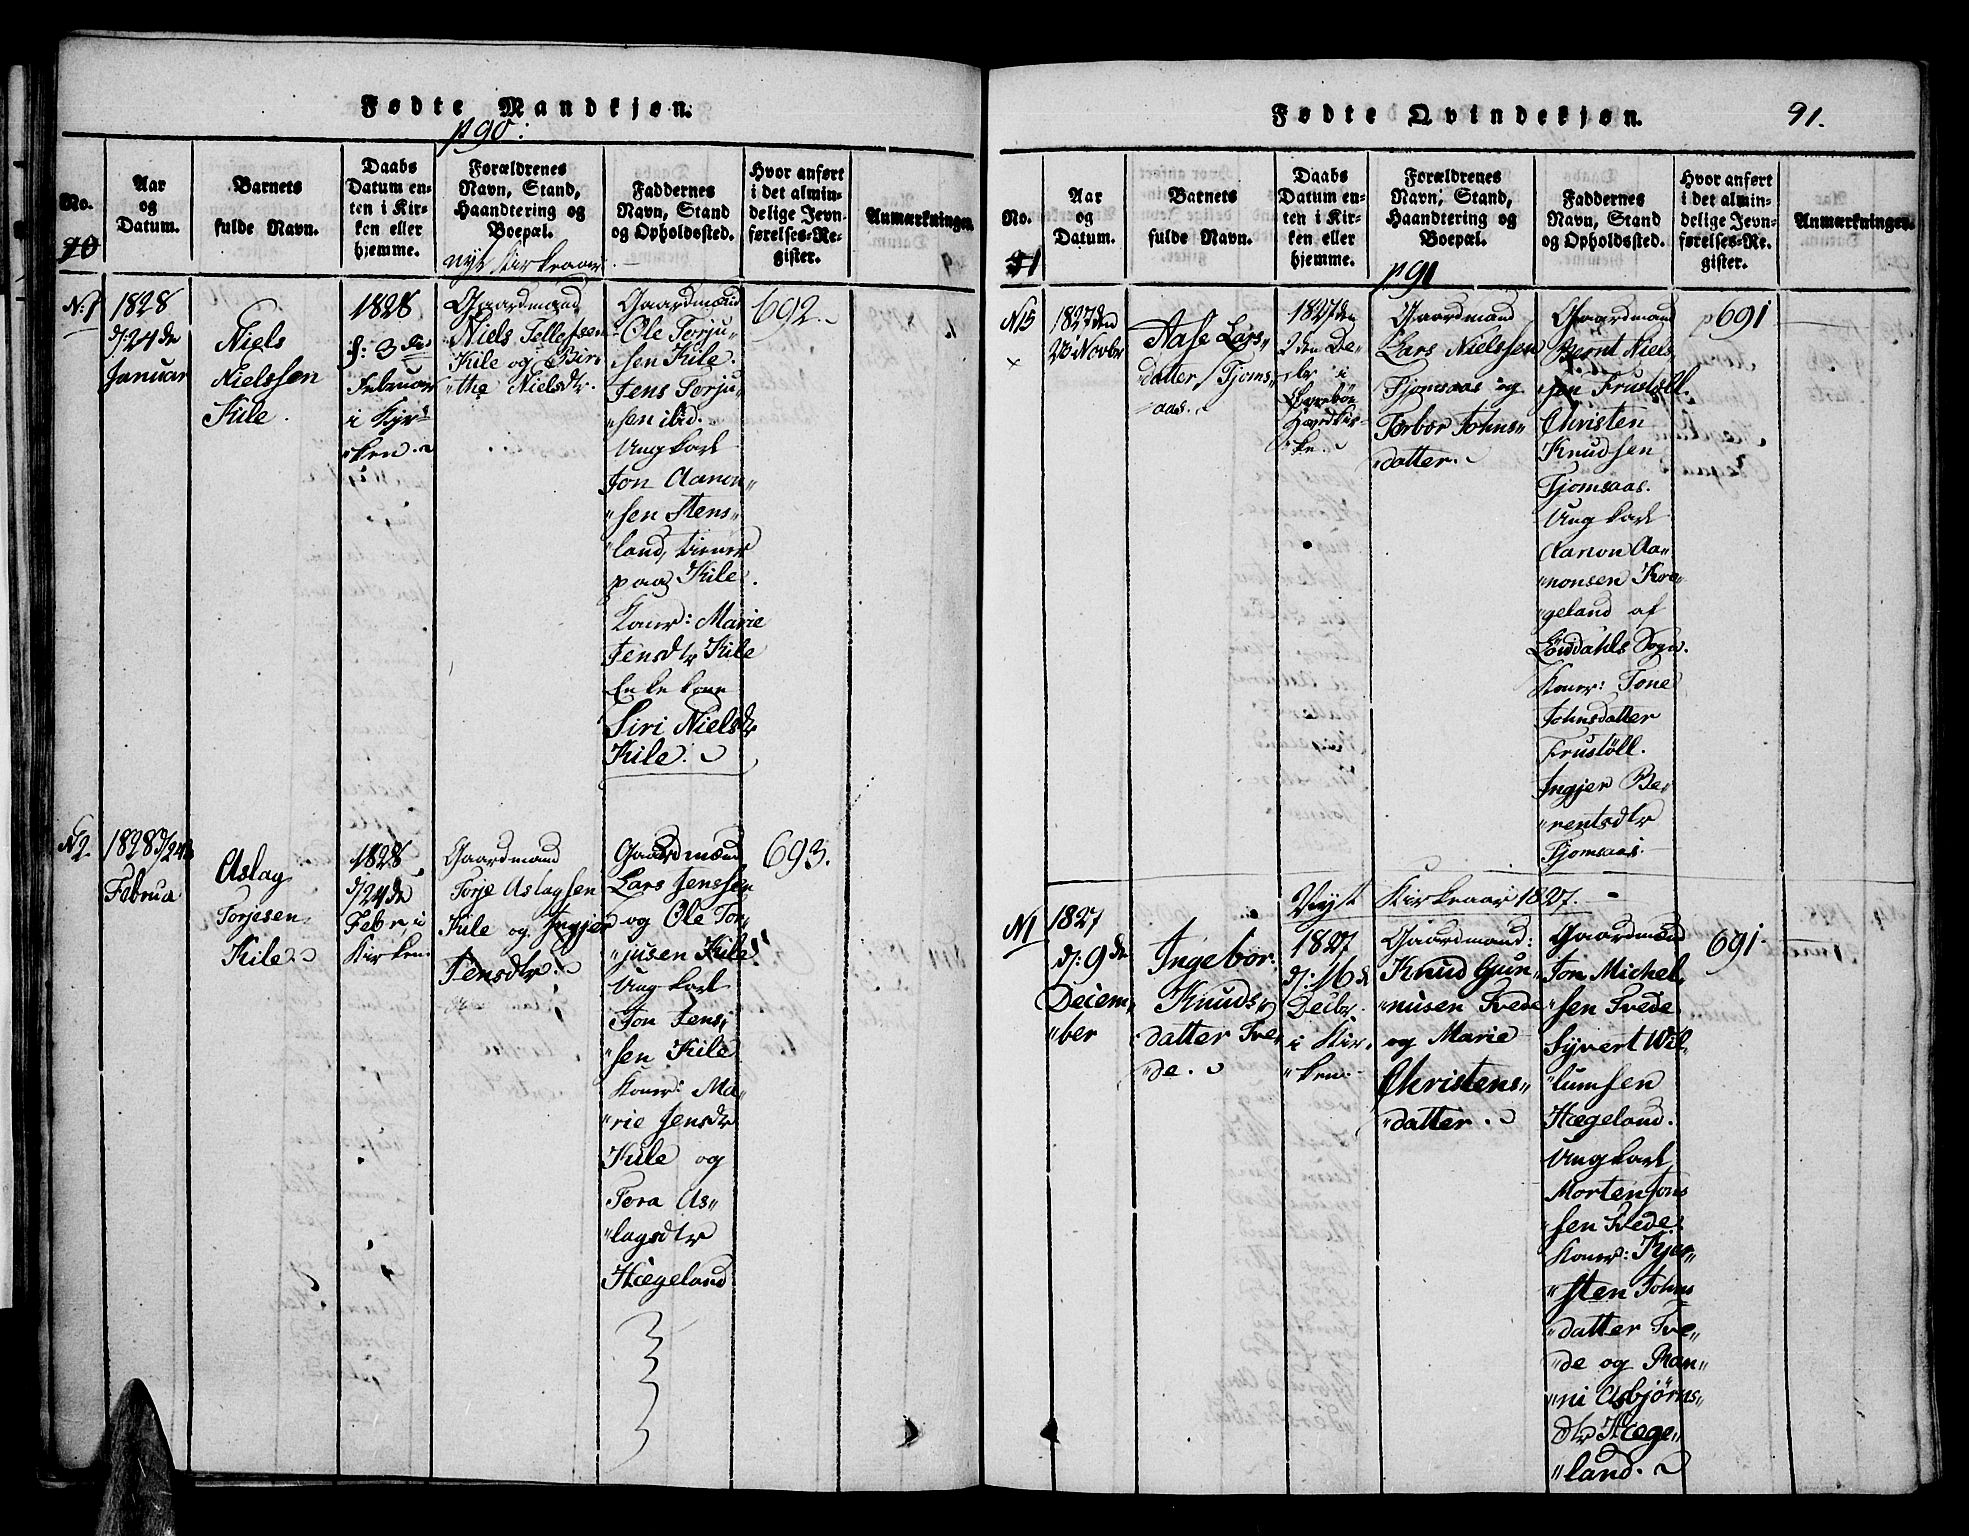 Fødte Mandkjøn.
p 90:
No.
Aar
og
Datum.
Barnets
fulde Navn.
Daabs
Datum en-
ten i Kir-
ken eller
hjemme.
Forældrenes
Navn, Stand,
Haandtering og
Boepæl.
Faddernes
Navn, Stand
og Opholdssted.
Hvor anført
i det almin-
delige Jevn-
førelses-Re-
gister.
Anmærkninger.
90
nyt Kirkeaar
N: 1
1828
d/24de
Januar
Niels
Nielssøn
Kile.
1828
d: 3die
Februar
i Kir-
"ken.
Gaardmand
Niels Tellefsen
Kile og Bir
"the Nielsdtr.
Gaardmænd
Ole Torju-
sen Kile.
Jens Torju-
"sen ibid.
Ungkarl
Jon Aanon-
"sen Stens-
"land, tiener
paa Kile.
Koner: Marie
Jensdtr Kile
Enkekone
Siri Nielsdtr
Kile.
692.
N 2.
1828 d/24de
Februa
Aslag
Torjesen
Kile.
1828
d/24de
Febr. i
Kirken.
Gaardmand
Torje Aslagsen
Kile og Ingjer
Jensdtr.
Gaardmænd
Lars Jenssen
og Ole Tor-
"jusen Kile
Ungkarl
Jon Jens-
"sen Kile
Koner: Ma-
"rie Jensdtr
Kile og
Tora As-
"lagsdtr
Hægeland
693.
Fødte Qvindekjøn.
91.
No.
Aar
og
Datum.
Barnets
fulde Navn.
Daabs
Datum en-
ten i Kir-
ken eller
hjemme.
Forældrenes
Navn, Stand,
Haandtering og
Boepæl.
Faddernes
Navn, Stand
og Opholdssted.
Hvor anført
i det almin-
delige Jevn-
førelses-Re-
gister.
Anmærkninger.
91
p 91
N 15
×
1827 den
Novbr
Aase Lars-
datter Tjoms-
"aas.
1827 den
2den De-
cbr i
Hovedkir-
"ke.
Gaardmand
Lars Nielssen
Tjomsaas og
Torbor Johns-
"datter.
Gaardmænd
Bernt Niels
sen Frustøll.
Christen
Knudsen
Tjomsaas.
Ungkarl
Aanon Aa-
"nonsen
"geland af
Sogn.
Koner: Tone
Johnsdatter
Frustøll.
Ingjer Be-
rentsdtr
Tjomsaas.
p 691
Nyt Kirkeaar 1827.
N 1
1827
d: 9de
Decem-
"ber
Ingebor
Knuds-
datter Tve-
"de.
1827
d: 16de
Decbr
i Kir-
"ken.
Gaardmand:
Knud Gun-
"nusen Tvede
og Marie
Christens-
"datter.
Gaardmænd
Jon Michel-
"sen Tvede
Syvert Wil-
"lumsen
Hægeland.
Ungkarl
Morten Jons
"sen Tvede.
Koner: Kjer-
"sten Johns
"datter Tve-
"de og Ran-
"ni Asbjørns-
dtr Hæge-
"land.
691.